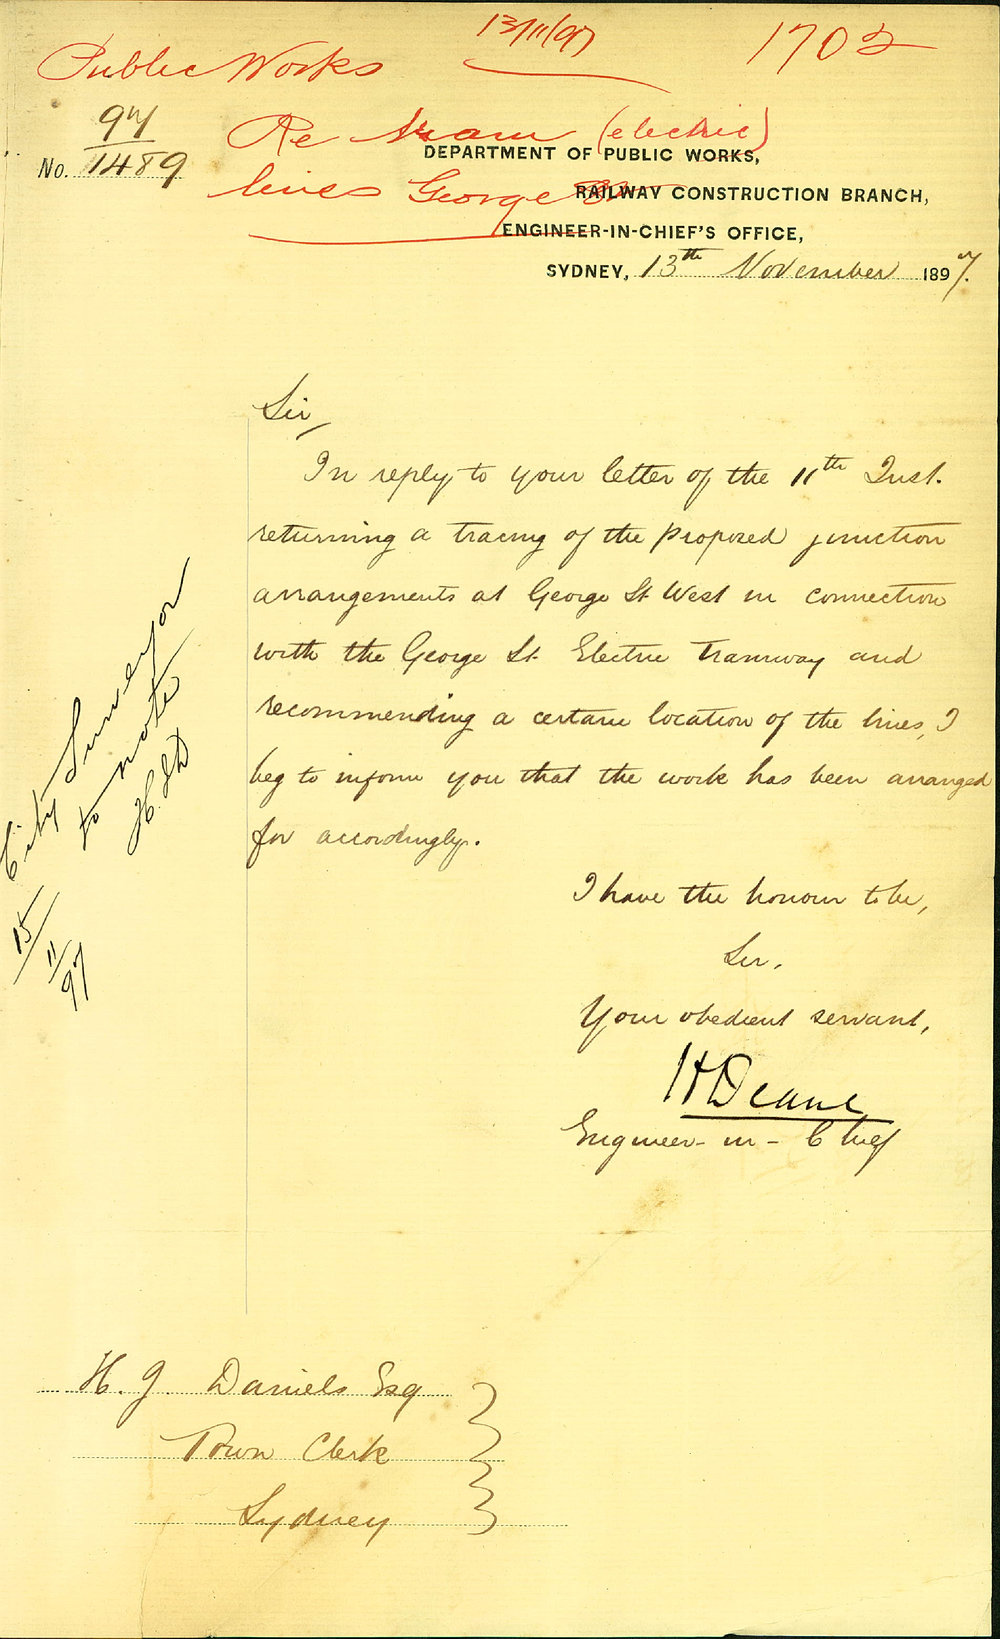 13/11/97
1702
Public Works
97
No. 1489
Re tram (electric)
lines George St
DEPARTMENT OF PUBLIC WORKS,
RAILWAY CONSTRUCTION BRANCH,
ENGINEER-IN-CHIEF'S OFFICE,
SYDNEY, 13th November 1897.
Sir,
In reply to your letter of the 11th Inst.
returning a tracing of the proposed junction
arrangements at George St West in connection
with the George St Electric Tramway and
recommending a certain location of the lines, I
beg to inform you that the work has been arranged
for accordingly.
I have the honour to be,
Sir,
Your obedient servant,
H Deane
Engineer-in-Chief
City Surveyor
to note
15/11/97
H. J. Daniels Esq
Town Clerk
Sydney